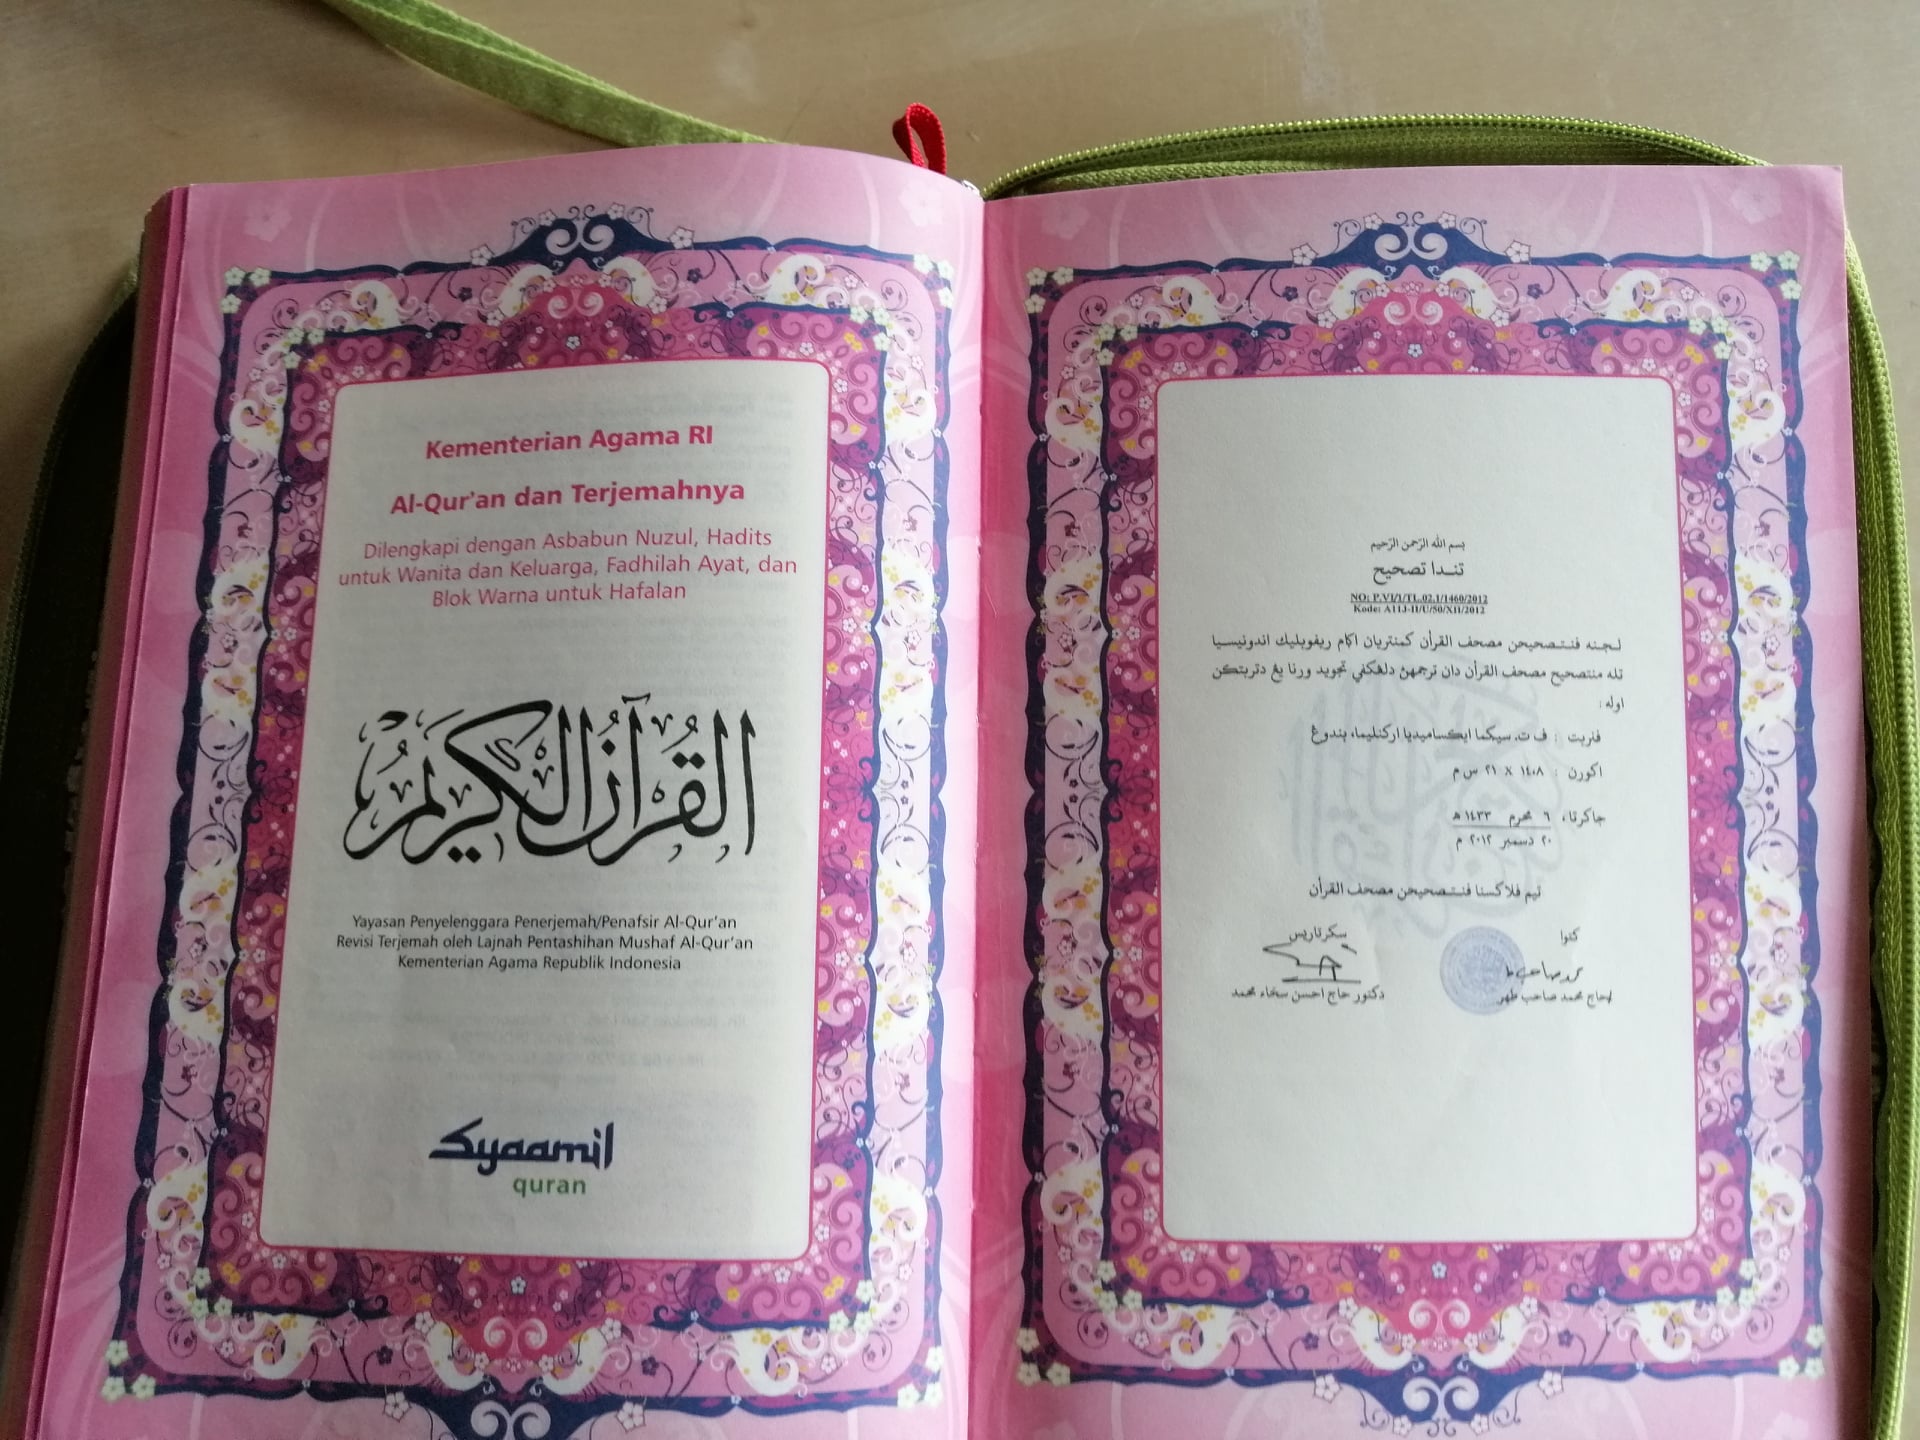 Kementerian Agama RI
Al-Qur'an dan Terjemahnya
Dilengkapi dengan Asbabun Nuzul, Hadits
untuk Wanita dan Keluarga, Fadhilah Ayat, dan
Blok Warna untuk Hafalan
القرآن الكريم
Yayasan Penyelenggara Penerjemah/Penafsir Al-Qur'an
Revisi Terjemah oleh Lajnah Pentashihan Mushaf Al-Qur'an
Kementerian Agama Republik Indonesia
Syaamil
quran
بسم الله الرحمن الرحيم
تندا تصحيح
NO: P.VI/1/TL.02.1/1460/2012
Kode: A11J-II/U/50/XII/2012
لجنه فنتصحيحن مصحف القرأن كمنتريان اݢام ريفوبليك اندونيسيا
تله منتصحيح مصحف القرأن دان ترجمهن دلڠكفي تجويد ورنا يڠ دتربتكن
اوله :
فنربت : ف ت. سيكما ايكساميديا اركنليما، بندوڠ
اكورن : ١٤،٨ x ٢١ س م
جاكرتا، ٦ محرم ١٤٣٣ ه
٢٠ دسمبر ٢٠١٢ م
تيم فلاكسنا فنتصحيحن مصحف القرأن
كتوا
سكرتاريس
لحاج محمد صاحب طهر
دكتور حاج احسن سخاء محمد